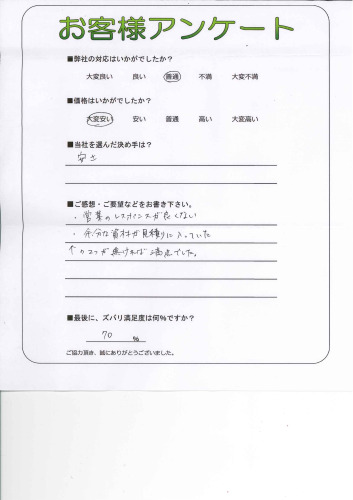 お客様アンケート
■弊社の対応はいかがでしたか?
大変良い 良い 普通 不満 大変不満
■価格はいかがでしたか?
大変安い 安い 普通 高い 大変高い
■当社を選んだ決め手は?
安さ
■ご感想・ご要望などをお書き下さい。
・営業のレスポンスが良くない
・余分な資材が見積りに入っていた
↑の2つが無ければ満点でした。
■最後に、ズバリ満足度は何%ですか?
70 %
ご協力頂き、誠にありがとうございました。